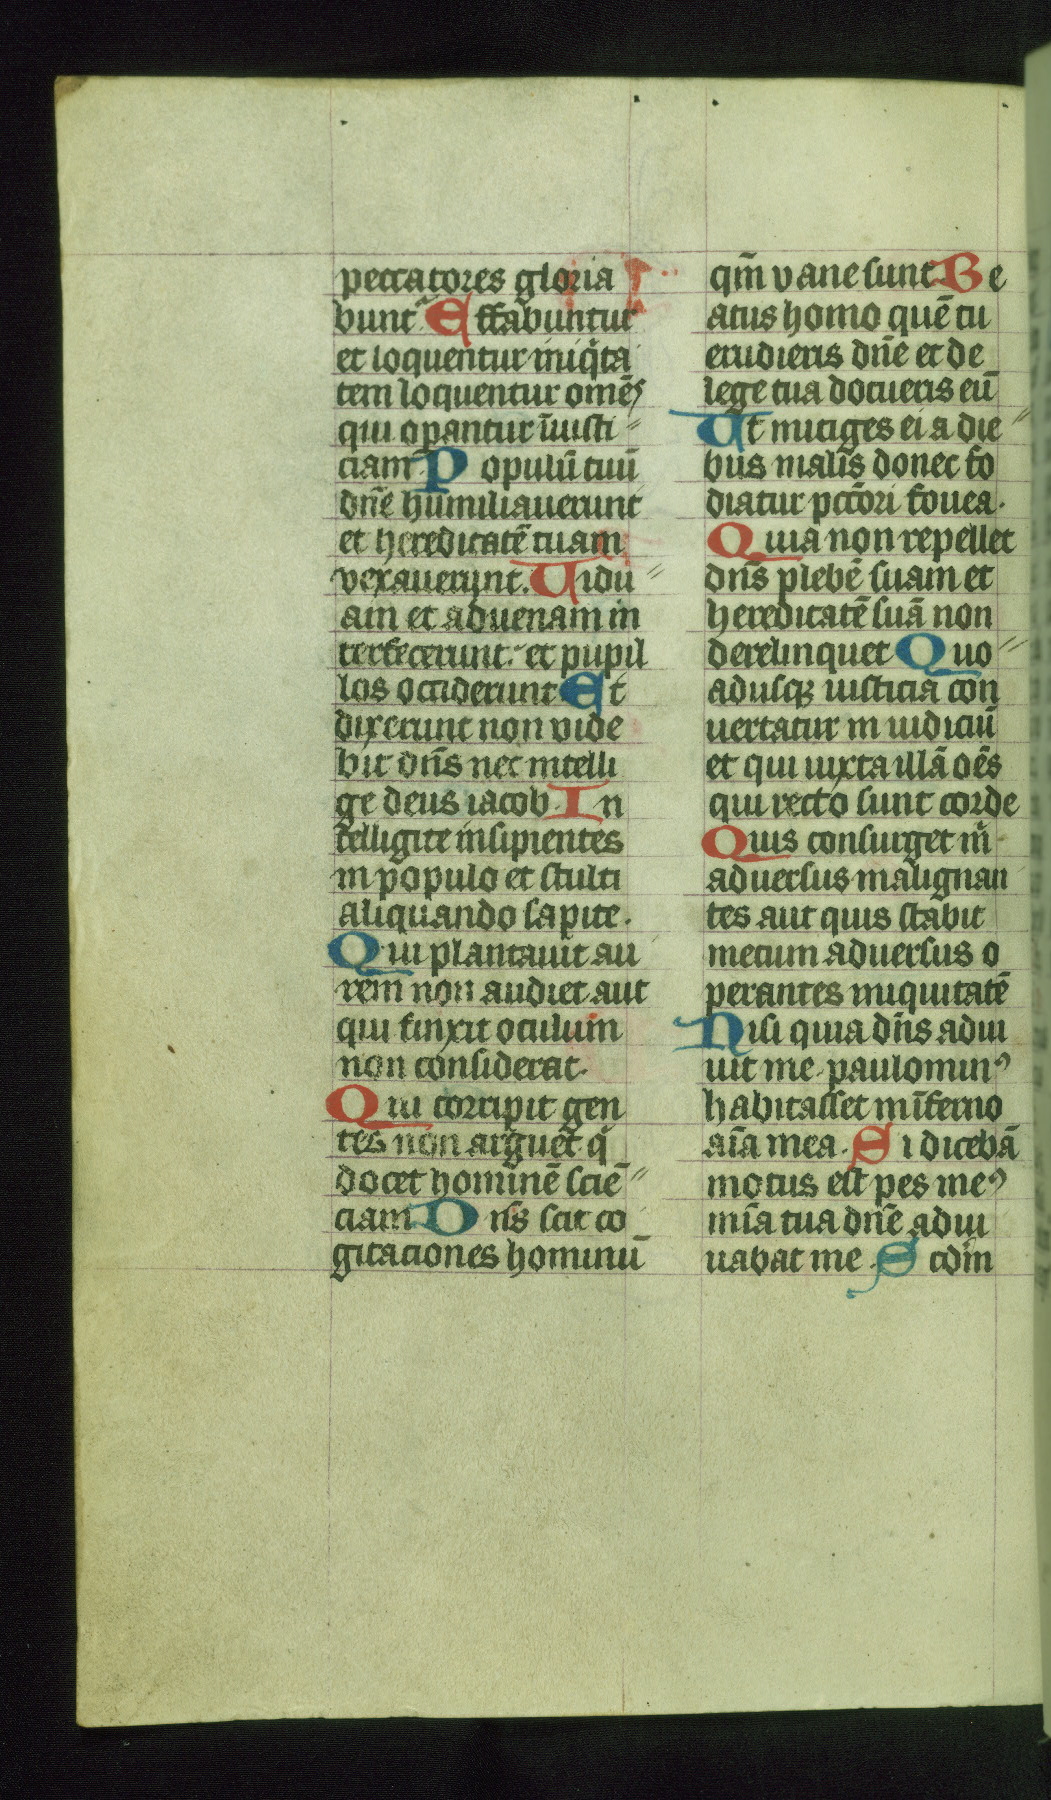 peccatores gloria
bunt᷑ Effabuntur
et loquentur iniq̇ta
tem loquentur omēs
qui opantur iniusti⸗
ciam. Populū tuū
dn̄e humiliauerunt
et hereditatē tuam
vexauerunt. Uidu⸗
am et aduenam in
terfecerunt. et pupil
los occiderunt Et
dixerunt non vide
bit dn̄s nec intelli
ge deus iacob. In
telligite insipientes
in populo et stulti
aliquando sapite.
Qui plantauit au
rem non audiet aut
qui finxit oculum
non considerat.
Qui corripit gen
tes non arguet q̇
docet hominē sciē⸗
ciam Dn̄s scit co
gitaciones hominū
qm̄ vane sunt. Be
atus homo quē tu
erudieris dn̄e et de
lege tua docueris eū
Ut mitiges ei a die⸗
bus malis donec fo
diatur pcc̄ori fouea.
Quia non repellet
dn̄s plebē suam et
hereditatē suā non
derelinquet Quo⸗
adusqꝫ iusticia con
uertatur in iudiciū
et qui iuxta illā oēs
qui recto sunt corde
Quis consurget m̄
aduersus malignan
tes aut quis stabit
mecum aduersus o
perantes iniquitatē
Nisi quia dn̄s adiu
uit me. paulominꝰ
habitasset in īferno
aīa mea. Si dicebā
motus est pes meꝰ
mīa tua dn̄e adiu
uabat me. Scdm̄